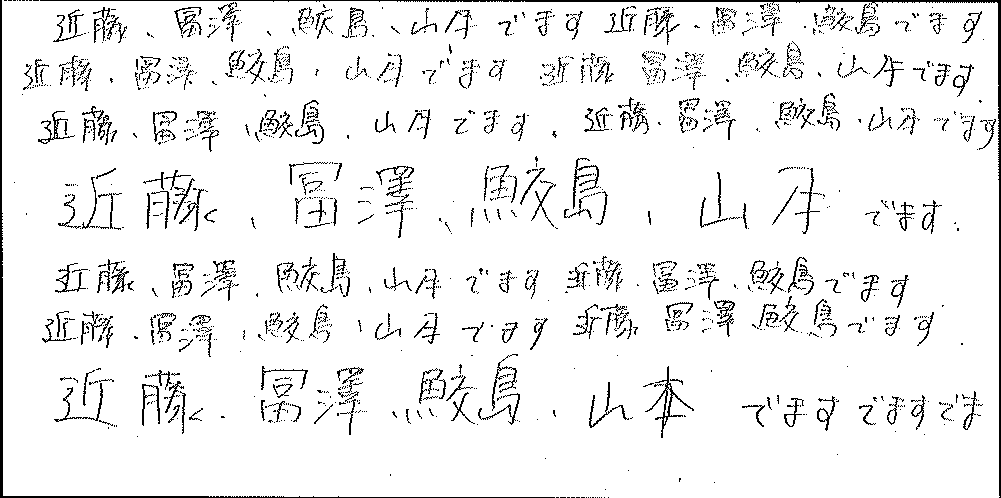 近藤、冨澤、鮫島、山本でます近藤、冨澤、鮫島でます
近藤、冨澤、鮫島、山本でます 近藤 冨澤、鮫島、山本でます
近藤、冨澤、鮫島、山本でます、近藤、冨澤、鮫島、山本でます
近藤、冨澤、鮫島、山本でます.
近藤、冨澤、鮫島、山本でます 近藤、冨澤、鮫島でます
近藤、冨澤、鮫島、山本でます 近藤 冨澤 鮫島でます
近藤、冨澤、鮫島、山本 でますでますでま